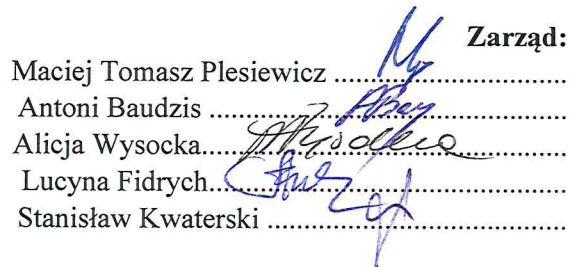 Zarząd:
Maciej Tomasz Plesiewicz ..............................
Antoni Baudzis ..............................................
Alicja Wysocka..............................................
Lucyna Fidrych..............................................
Stanisław Kwaterski ......................................